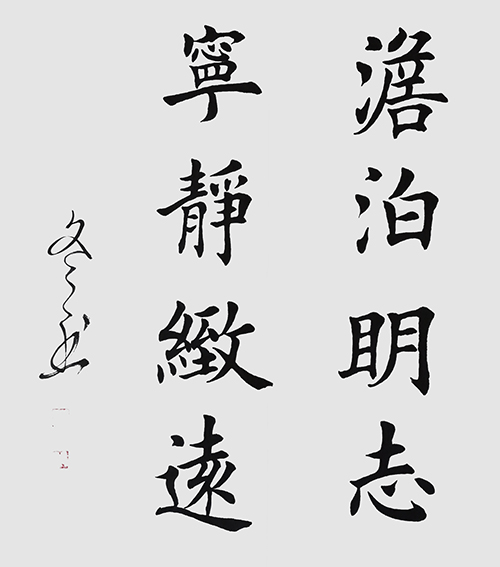 澹泊明志
寧靜緻遠